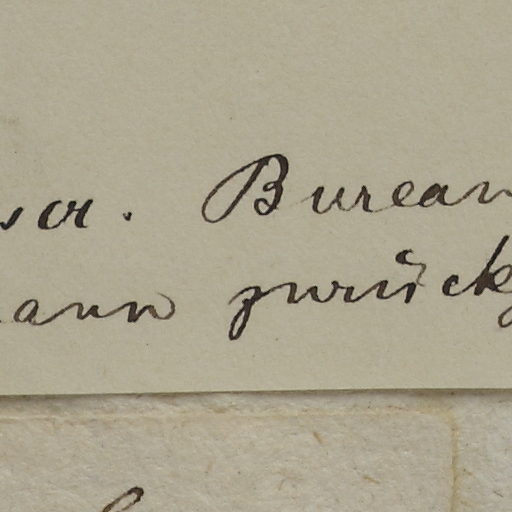 scr. Bureau
ann zurück